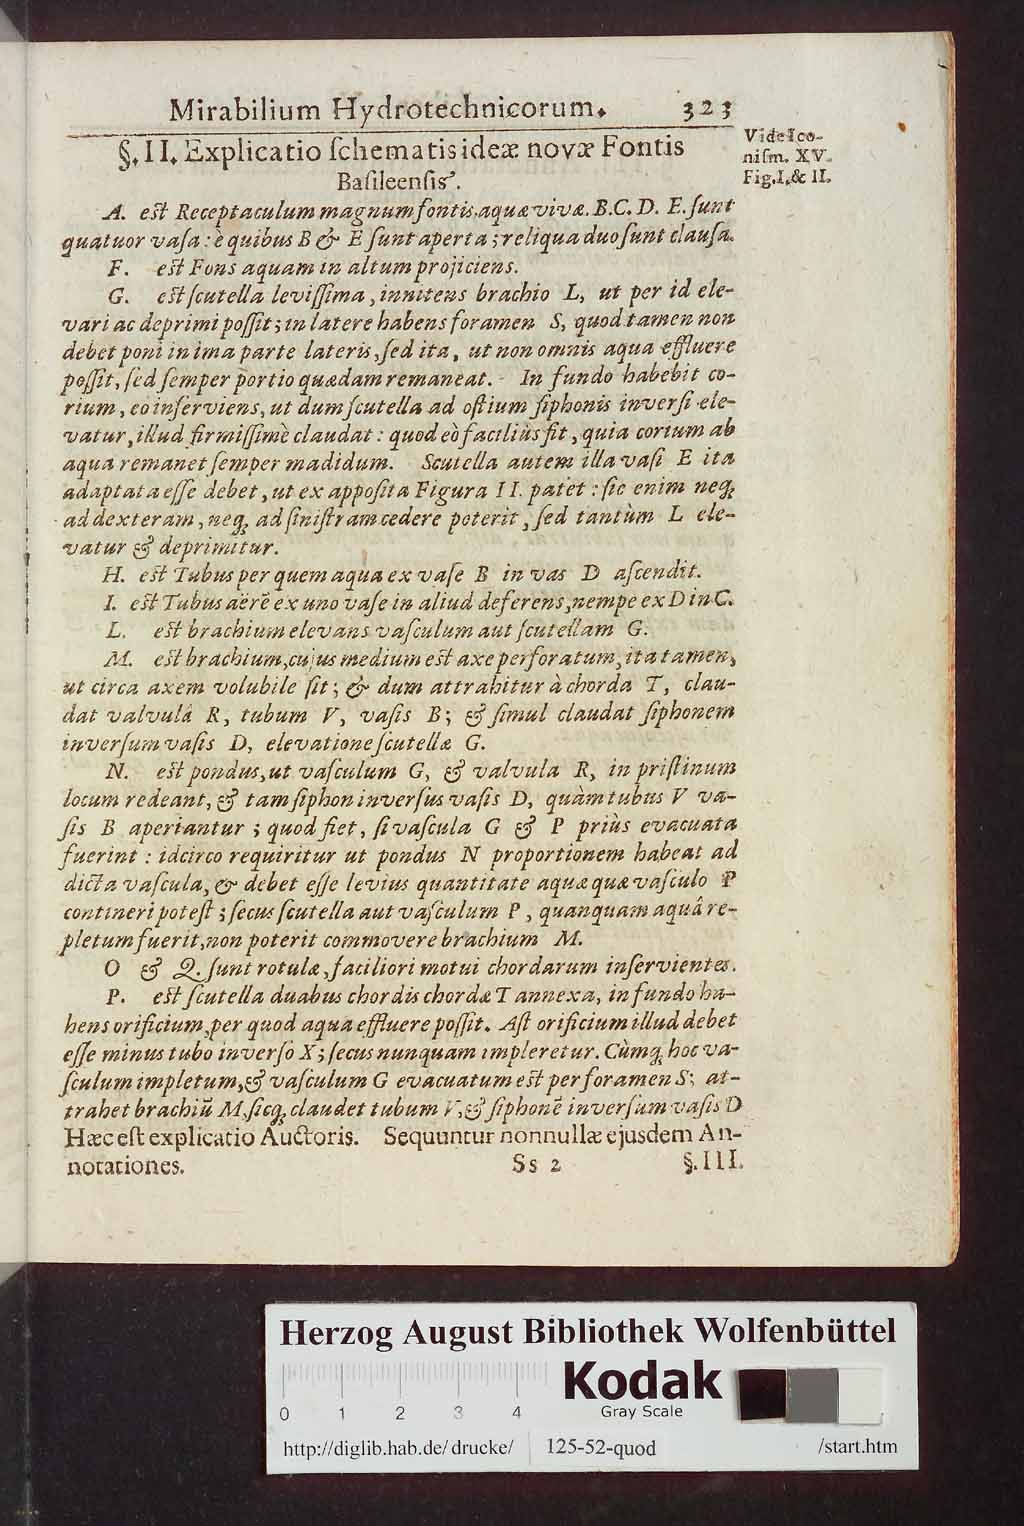 Mirabilium Hydrotechnicorum. 323
Vide Ico-
nism. XV.
Fig. I. & II.
§. II. Explicatio ſchematis ideæ novæ Fontis
Baſileenſis.
A. eſt Receptaculum magnum fontis, aquæ vivæ. B. C. D. E. ſunt
quatuor vaſa: è quibus B & E ſunt aperta; reliqua duo ſunt clauſa.
F. eſt Fons aquam in altum projiciens.
G. eſt ſcutella leviſſima, innitens brachio L, ut per id ele-
vari ac deprimi poſſit; in latere habens foramen S, quod tamen non
debet poni in ima parte lateris, ſed ita, ut non omnis aqua effluere
poſſit, ſed ſemper portio quædam remaneat. In fundo habebit co-
rium, eo inſerviens, ut dum ſcutella ad oſtium ſiphonis inverſi ele-
vatur, illud firmiſſimè claudat: quod eò faciliùs fit, quia corium ab
aqua remanet ſemper madidum. Scutella autem illa vaſi E ita
adaptata eſſe debet, ut ex appoſita Figura II. patet: ſic enim neq;
ad dexteram, neq; ad ſiniſtram cedere poterit, ſed tantùm L ele-
vatur & deprimitur.
H. eſt Tubus per quem aqua ex vaſe B in vas D aſcendit.
I. eſt Tubus aërẽ ex uno vaſe in aliud deferens, nempe ex D in C.
L. eſt brachium elevans vaſculum aut ſcutellam G.
M. eſt brachium, cujus medium eſt axe perforatum, ita tamen,
ut circa axem volubile ſit; & dum attrahitur à chorda T, clau-
dat valvulâ R, tubum V, vaſis B; & ſimul claudat ſiphonem
inverſum vaſis D, elevatione ſcutellæ G.
N. eſt pondus, ut vaſculum G, & valvula R, in priſtinum
locum redeant, & tam ſiphon inverſus vaſis D, quàm tubus V va-
ſis B aperiantur; quod fiet, ſi vaſcula G & P priùs evacuata
fuerint: idcirco requiritur ut pondus N proportionem habeat ad
dicta vaſcula, & debet eſſe levius quantitate aquæ quæ vaſculo P
contineri poteſt; ſecus ſcutella aut vaſculum P, quanquam aquâ re-
pletum fuerit, non poterit commovere brachium M.
O & Q. ſunt rotulæ, faciliori motui chordarum inſervientes.
P. eſt ſcutella duabus chordis chordæ T annexa, in fundo ha-
bens orificium, per quod aqua effluere poſſit. Aſt orificium illud debet
eſſe minus tubo inverſo X; ſecus nunquam impleretur. Cùmq; hoc va-
ſculum impletum, & vaſculum G evacuatum eſt per foramen S; at-
trahet brachiũ M, ſicq; claudet tubum V, & ſiphonẽ inverſum vaſis D
Hæc eſt explicatio Auctoris. Sequuntur nonnullæ ejusdem An-
notationes.
Ss 2 §. III.
Herzog August Bibliothek Wolfenbüttel
0 1 2 3 4
Kodak
Gray Scale
http://diglib.hab.de/drucke/ 125-52-quod /start.htm